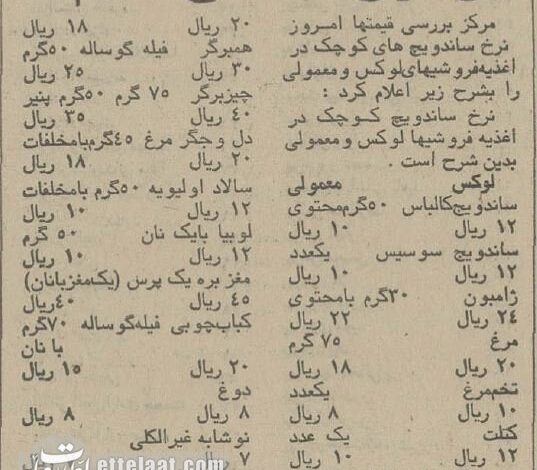 مرکز بررسی قیمتها امروز
نرخ ساندویچ های کوچک در
اغذیه فروشیهای لوکس و معمولی
را بشرح زیر اعلام کرد :
نرخ ساندویچ کوچک در
اغذیه فروشیها لوکس و معمولی
بدین شرح است .
لوکس معمولی
ساندویچ کالباس ۵۰ گرم محتوی
۱۲ ریال ۱۰ ریال
ساندویچ سوسیس یکعدد
۱۲ ریال ۱۰ ریال
ژامبون ۳۰ گرم با محتوی
۲۴ ریال ۲۲ ریال
مرغ ۷۵ گرم
۲۰ ریال ۱۸ ریال
تخم مرغ یکعدد
۱۰ ریال ۸ ریال
کتلت یک عدد
۱۲ ریال ۱۰ ریال
۲۰ ریال ۱۸ ریال
همبرگر فیله گوساله ۵۰ گرم
۳۰ ریال ۲۵ ریال
چیزبرگر ۷۵ گرم ۵۰ گرم پنیر
۴۰ ریال ۳۵ ریال
دل و جگر مرغ ۴۵ گرم با مخلفات
۲۰ ریال ۱۸ ریال
سالاد اولیویه ۵۰ گرم با مخلفات
۱۲ ریال ۱۰ ریال
لوبیا بایک نان ۵۰ گرم
۱۲ ریال ۱۰ ریال
مغز بره یک پرس (یک مغز یا نان)
۴۵ ریال ۴۰ ریال
کباب چوبی فیله گوساله ۷۰ گرم
با نان
۲۰ ریال ۱۵ ریال
دوغ
۸ ریال ۸ ریال
نوشابه غیر الکلی
۷ ریال
ettelaat.com